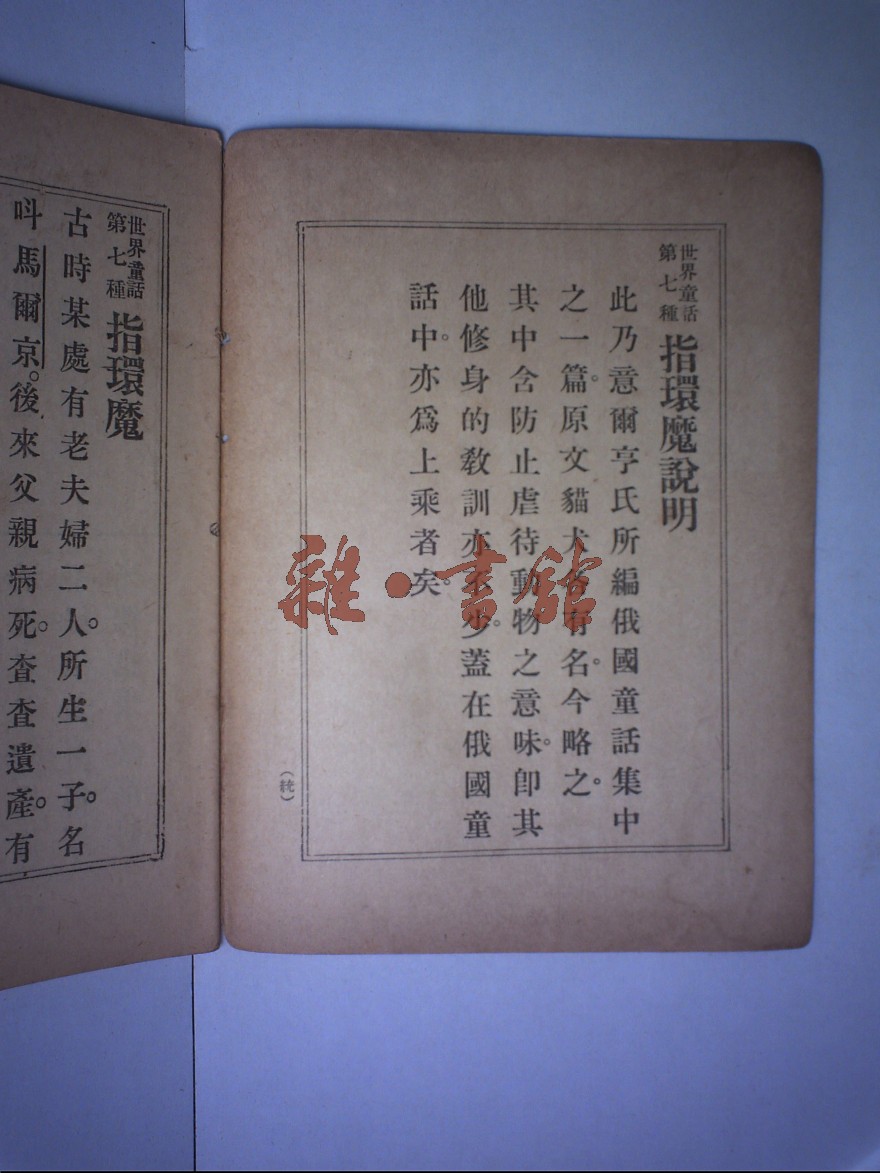 世界童話
第七種
指環魔說明
此乃意爾亨氏所編俄國童話集中
之一篇。原文貓犬各有名。今略之。
其中含防止虐待動物之意味。卽其
他修身的敎訓亦不少。蓋在俄國童
話中。亦爲上乘者矣。
(統)
世界童話
第七種
指環魔
古時某處有老夫婦二人。所生一子。名
呌馬爾京。後來父親病死。查查遺產。有
雜·書館